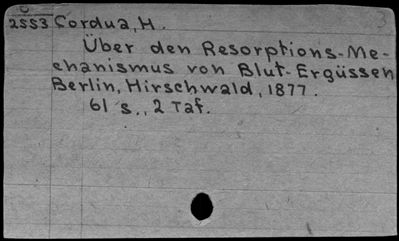 2553 Cordua, H.
3
Über den Resorptions-Me-
chanismus von Blut-Ergüssen
Berlin, Hirschwald, 1877.
61 s., 2 Taf.